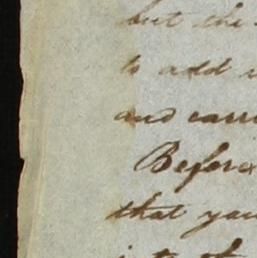 but the
to add
and carri
Before
that you